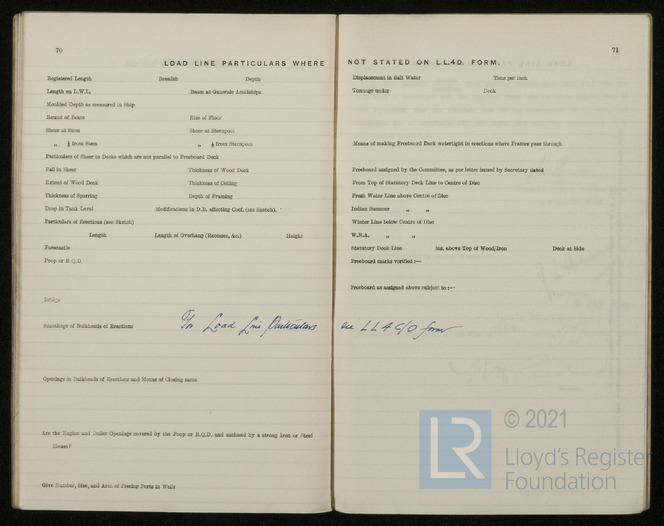 70
LOAD LINE PARTICULARS WHERE
Registered Length Breadth Depth
Length on L.W.L. Beam at Gunwale Amidships
Moulded Depth as measured in Ship
Round of Beam Rise of Floor
Sheer at Stem Sheer at Sternpost
„ ⅛ from Stem „ ⅛ from Sternpost
Particulars of Sheer in Decks which are not parallel to Freeboard Deck
Fall in Sheer Thickness of Wood Deck
Extent of Wood Deck Thickness of Ceiling
Thickness of Sparring Depth of Framing
Drop in Tank Level Modifications in D.B. affecting Coef. (see Sketch).
Particulars of Erections (see Sketch)
Length Length of Overhang (Recesses, &c.) Height
Forecastle
Poop or R.Q.D
Bridge
Scantlings of Bulkheads of Erections
For Load Line Particulars
Openings in Bulkheads of Erections and Means of Closing same
Are the Engine and Boiler Openings covered by the Poop or R.Q.D. and enclosed by a strong Iron or Steel
House?
Give Number, Size, and Area of Freeing Ports in Wells
71
NOT STATED ON LL4D. FORM.
Displacement in Salt Water Tons per inch
Tonnage under Deck
Means of making Freeboard Deck watertight in erections where Frames pass through
Freeboard assigned by the Committee, as per letter issued by Secretary dated
From Top of Statutory Deck Line to Centre of Disc
Fresh Water Line above Centre of Disc
Indian Summer „ „
Winter Line below Centre of Disc
W.N.A. „ „
Statutory Deck Line ins. above Top of Wood/Iron Deck at Side
Freeboard marks verified :—
Freeboard as assigned above subject to :—
see LL4 c/D form
© 2021
LR
Lloyd's Register
Foundation